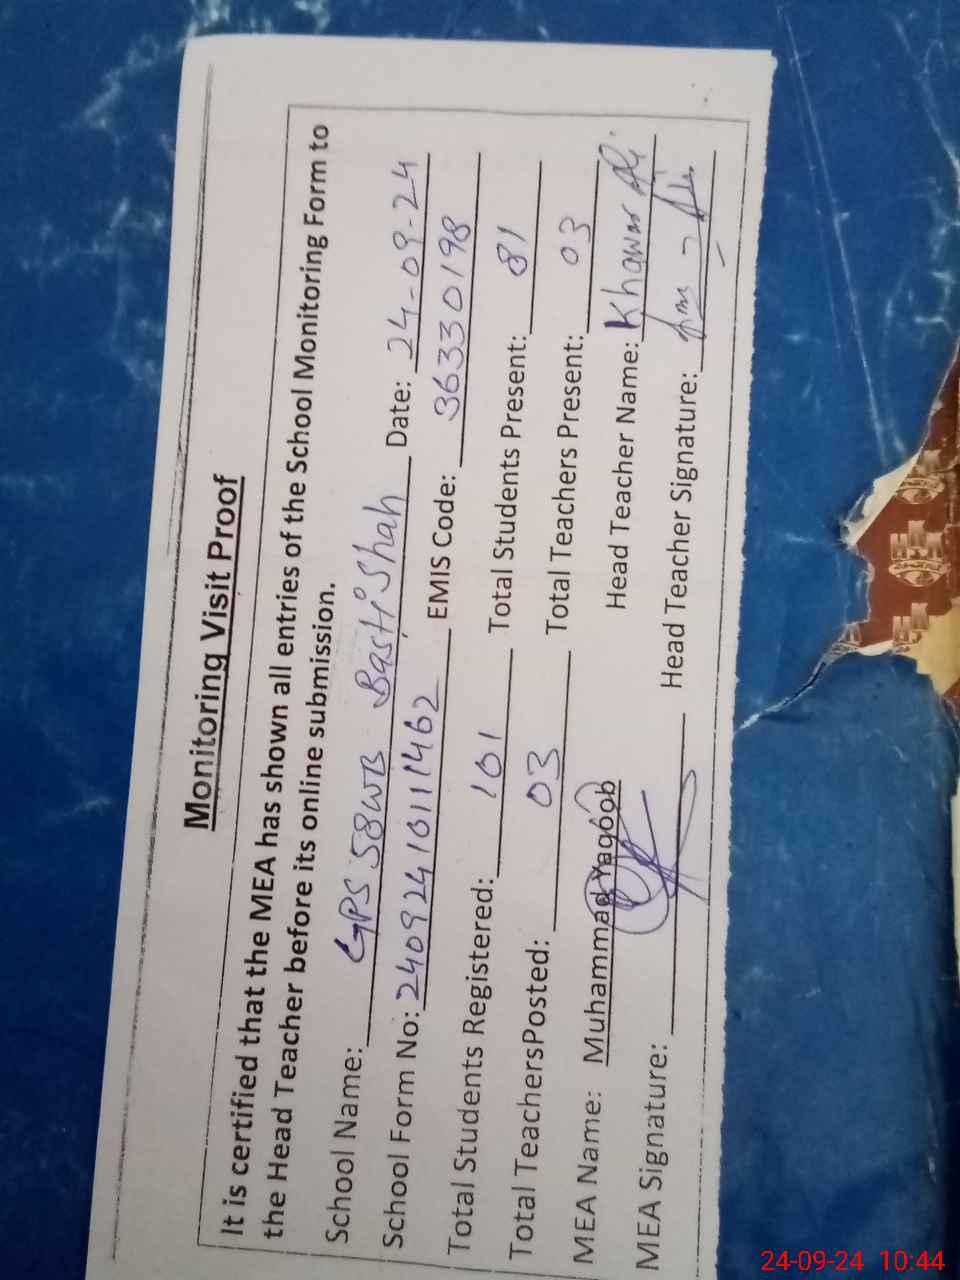 Monitoring Visit Proof
It is certified that the MEA has shown all entries of the School Monitoring Form to
the Head Teacher before its online submission.
School Name: GPS 58WB Basti Shah Date: 24-09-24
School Form No: 240924101111462 EMIS Code: 36330198
Total Students Registered: 101 Total Students Present: 81
Total TeachersPosted: 03 Total Teachers Present: 03
MEA Name: Muhammad Yaqoob Head Teacher Name: Khawar Ali
MEA Signature: Head Teacher Signature:
24-09-24 10:44